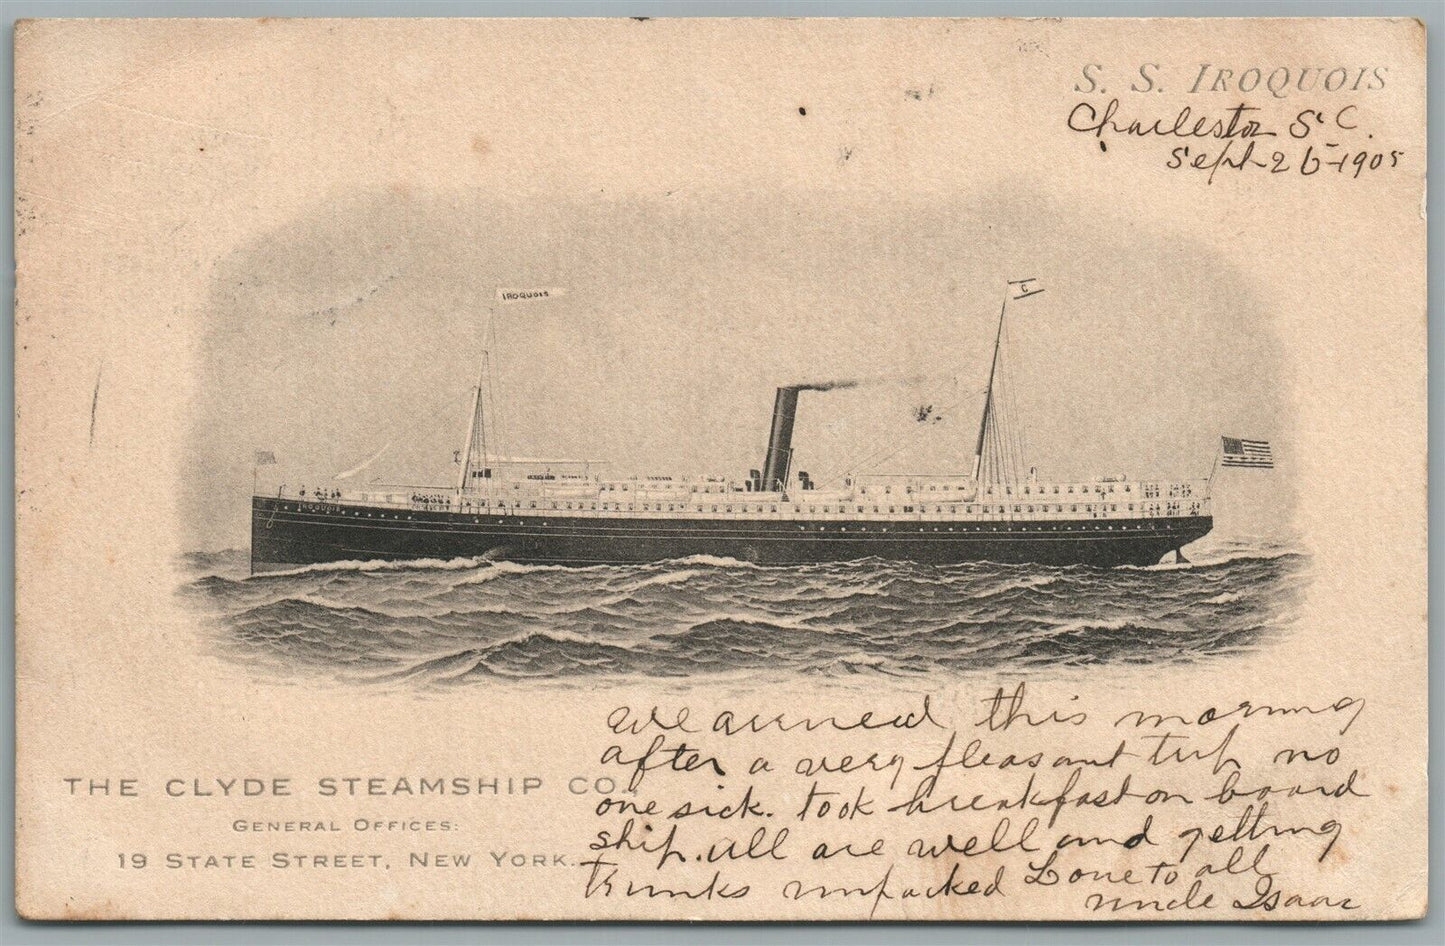 S. S. IROQUOIS
Charleston S C.
Sept 26-1905
IROQUOIS
C
IROQUOIS
we arrived this morning
after a very pleasant trip no
one sick. took breakfast on board
ship. all are well and getting
trunks unpacked Love to all
uncle Isaac
THE CLYDE STEAMSHIP CO.
GENERAL OFFICES:
19 STATE STREET, NEW YORK.